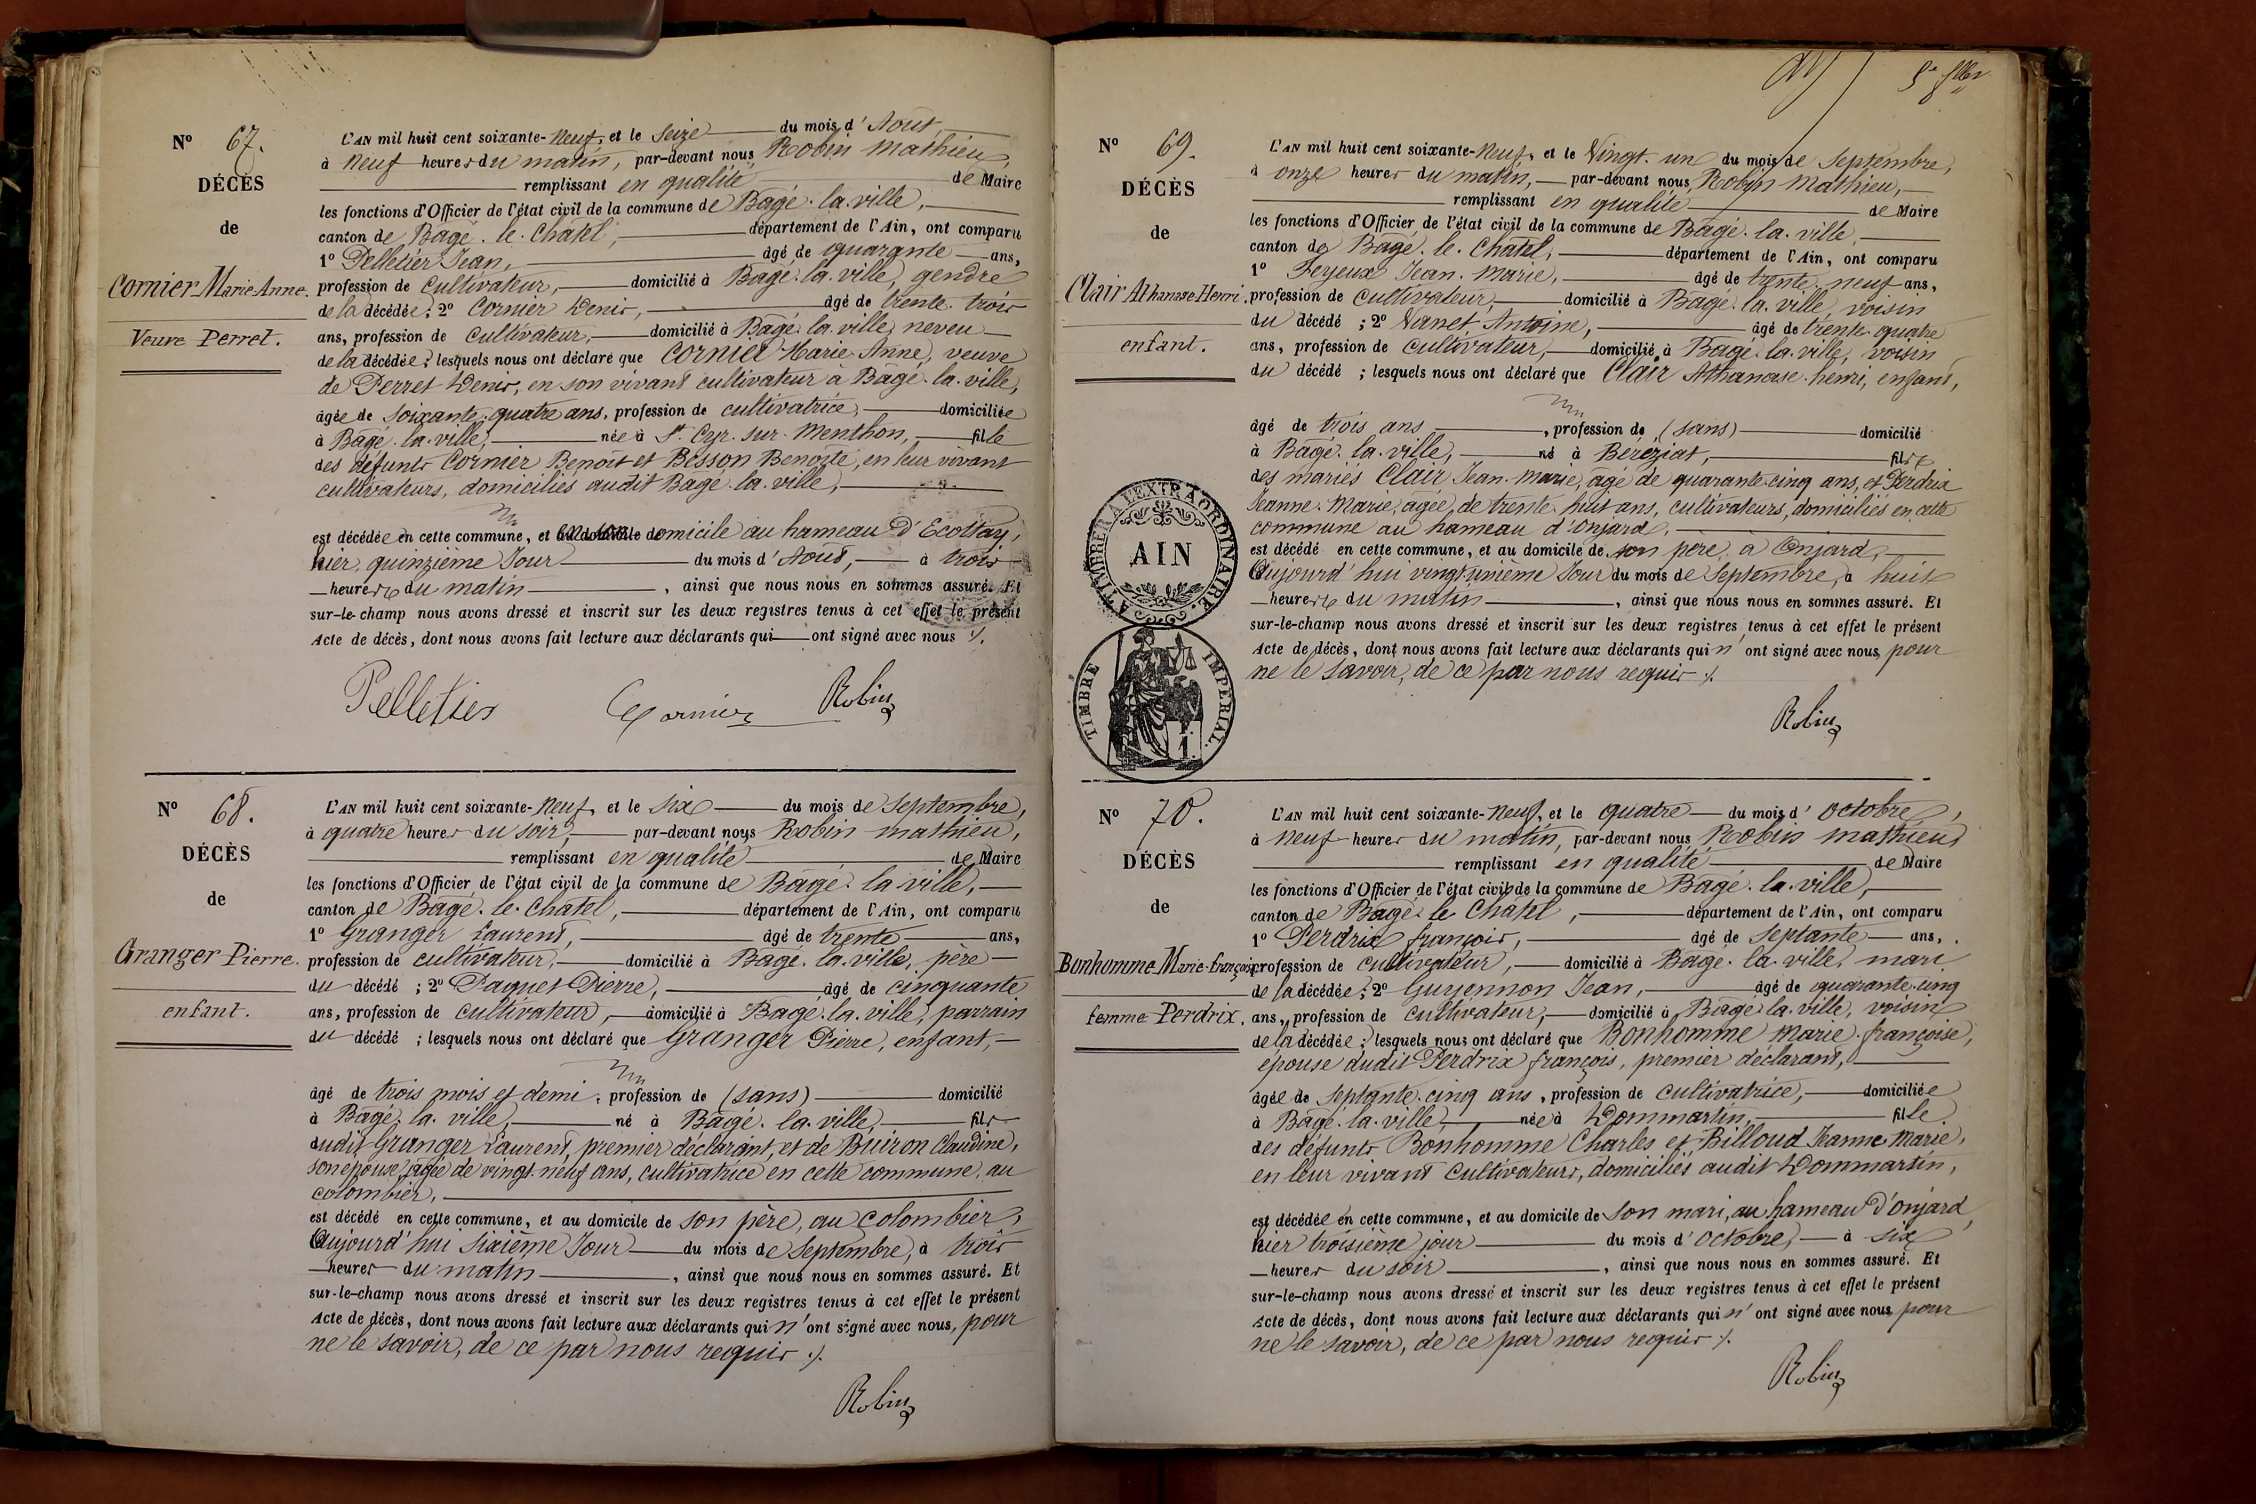 Nº 67.
DÉCÈS
de
Cornier Marie Anne.
Veuve Perret.
L'AN mil huit cent soixante-neuf, et le seize du mois d'Aout,
à neuf heures du matin, par-devant nous Robin Mathieu,
remplissant en qualité de Maire
les fonctions d'Officier de l'état civil de la commune de Bâgé-la-ville,
canton de Bâgé-le-Châtel, département de l'Ain, ont comparu
1º Pelletier Jean, âgé de quarante ans,
profession de cultivateur, domicilié à Bâgé-la-ville, gendre
de la décédée; 2º Cornier Denis, âgé de trente-trois
ans, profession de cultivateur, domicilié à Bâgé-la-ville, neveu
de la décédée; lesquels nous ont déclaré que Cornier Marie Anne, veuve
de Perret Denis, en son vivant cultivateur à Bâgé-la-ville,
âgée de soixante-quatre ans, profession de cultivatrice, domiciliée
à Bâgé-la-ville, née à St. Cyr-sur-Menthon, fille
des défunts Cornier Benoît et Besson Benoîte, en leur vivant
cultivateurs, domiciliés audit Bâgé-la-ville,
est décédée en cette commune, et en son domicile au hameau d'Ecottay,
hier, quinzième Jour du mois d'Aout, à trois
heures du matin, ainsi que nous nous en sommes assuré. Et
sur-le-champ nous avons dressé et inscrit sur les deux registres tenus à cet effet le présent
Acte de décès, dont nous avons fait lecture aux déclarants qui ont signé avec nous ./.
Pelletier Cornier Robin
Nº 68.
DÉCÈS
de
Granger Pierre.
enfant.
L'AN mil huit cent soixante-neuf, et le six du mois de Septembre,
à quatre heures du soir, par-devant nous Robin Mathieu,
remplissant en qualité de Maire
les fonctions d'Officier de l'état civil de la commune de Bâgé-la-ville,
canton de Bâgé-le-Châtel, département de l'Ain, ont comparu
1º Granger Laurent, âgé de trente ans,
profession de cultivateur, domicilié à Bâgé-la-ville, père
du décédé; 2º Paquet Pierre, âgé de cinquante
ans, profession de cultivateur, domicilié à Bâgé-la-ville, parrain
du décédé; lesquels nous ont déclaré que Granger Pierre, enfant,
âgé de trois mois et demi, profession de (sans) domicilié
à Bâgé-la-ville, né à Bâgé-la-ville, fils
dudit Granger Laurent, premier déclarant, et de Buiron Claudine,
son épouse, âgée de vingt-neuf ans, cultivatrice en cette commune, au
colombier,
est décédé en cette commune, et au domicile de son père, au colombier,
Aujourd'hui sixième Jour du mois de Septembre, à trois
heures du matin, ainsi que nous nous en sommes assuré. Et
sur-le-champ nous avons dressé et inscrit sur les deux registres tenus à cet effet le présent
Acte de décès, dont nous avons fait lecture aux déclarants qui n'ont signé avec nous, pour
ne le savoir, de ce par nous requis ./.
Robin
Nº 69.
DÉCÈS
de
Clair Athanase Henri.
enfant.
L'AN mil huit cent soixante-neuf, et le Vingt-un du mois de Septembre,
à onze heures du matin, par-devant nous Robin Mathieu,
remplissant en qualité de Maire
les fonctions d'Officier de l'état civil de la commune de Bâgé-la-ville,
canton de Bâgé-le-Châtel, département de l'Ain, ont comparu
1º Feyeux Jean-Marie, âgé de trente-neuf ans,
profession de cultivateur, domicilié à Bâgé-la-ville, voisin
du décédé; 2º Vanet Antoine, âgé de trente-quatre
ans, profession de cultivateur, domicilié à Bâgé-la-ville, voisin
du décédé; lesquels nous ont déclaré que Clair Athanase-henri, enfant,
âgé de trois ans, profession de (sans) domicilié
à Bâgé-la-ville, né à Béréziat, fils
des mariés Clair Jean-Marie, âgé de quarante-cinq ans, et Perdrix
Jeanne-Marie, âgée de trente-huit ans, cultivateurs, domiciliés en cette
commune au hameau d'Onjard,
est décédé en cette commune, et au domicile de son père, à Onjard,
Aujourd'hui vingt-unième Jour du mois de Septembre, à huit
heures du matin, ainsi que nous nous en sommes assuré. Et
sur-le-champ nous avons dressé et inscrit sur les deux registres tenus à cet effet le présent
Acte de décès, dont nous avons fait lecture aux déclarants qui n'ont signé avec nous, pour
ne le savoir, de ce par nous requis ./.
Robin
TIMBRE A L'EXTRAORDINAIRE.
AIN
TIMBRE IMPERIAL.
1.
Nº 70.
DÉCÈS
de
Bonhomme Marie-françoise
femme Perdrix.
L'AN mil huit cent soixante-neuf, et le quatre du mois d'octobre,
à neuf heures du matin, par-devant nous Robin Mathieu
remplissant en qualité de Maire
les fonctions d'Officier de l'état civil de la commune de Bâgé-la-ville,
canton de Bâgé-le-Châtel, département de l'Ain, ont comparu
1º Perdrix françois, âgé de Septante ans,
profession de cultivateur, domicilié à Bâgé-la-ville, mari
de la décédée; 2º Guyennon Jean, âgé de quarante-cinq
ans, profession de cultivateur, domicilié à Bâgé-la-ville, voisin
de la décédée; lesquels nous ont déclaré que Bonhomme Marie-françoise,
épouse dudit Perdrix françois, premier déclarant,
âgée de septante-cinq ans, profession de cultivatrice, domiciliée
à Bâgé-la-ville, née à Dommartin, fille
des défunts Bonhomme Charles et Billoud Jeanne-Marie,
en leur vivant cultivateurs, domiciliés audit Dommartin,
est décédée en cette commune, et au domicile de son mari, au hameau d'Onjard,
hier troisième jour du mois d'octobre, à six
heures du soir, ainsi que nous nous en sommes assuré. Et
sur-le-champ nous avons dressé et inscrit sur les deux registres tenus à cet effet le présent
Acte de décès, dont nous avons fait lecture aux déclarants qui n'ont signé avec nous pour
ne le savoir, de ce par nous requis ./.
Robin